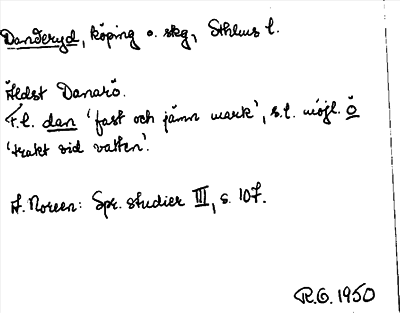 Danderyd, köping o. skg, Sthlms l.
Äldst Danarö.
F.l. dan 'fast och jämn mark', s.l. möjl. ö
'trakt vid vatten'.
A. Noreen: Spr. studier III, s. 107.
R.O. 1950